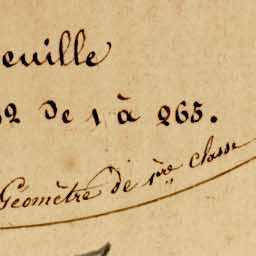 euille
2 de 1 à 265.
Géomètre de 1ère classe